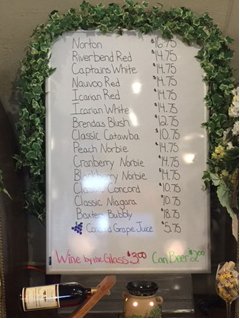 Norton $16.75
Riverbend Red $14.75
Captains White $14.75
Nauvoo Red $14.75
Icarian Red $14.75
Icarian White $14.75
Brendas Blush $12.75
Classic Catawba $10.75
Peach Norbie $14.75
Cranberry Norbie $14.75
Blackberry Norbie $14.75
Classic Concord $10.75
Classic Niagara $10.75
Baxters Bubbly
Concord Grape Juice $5.75
Wine by the Glass $3.00 Can Beer $2.00